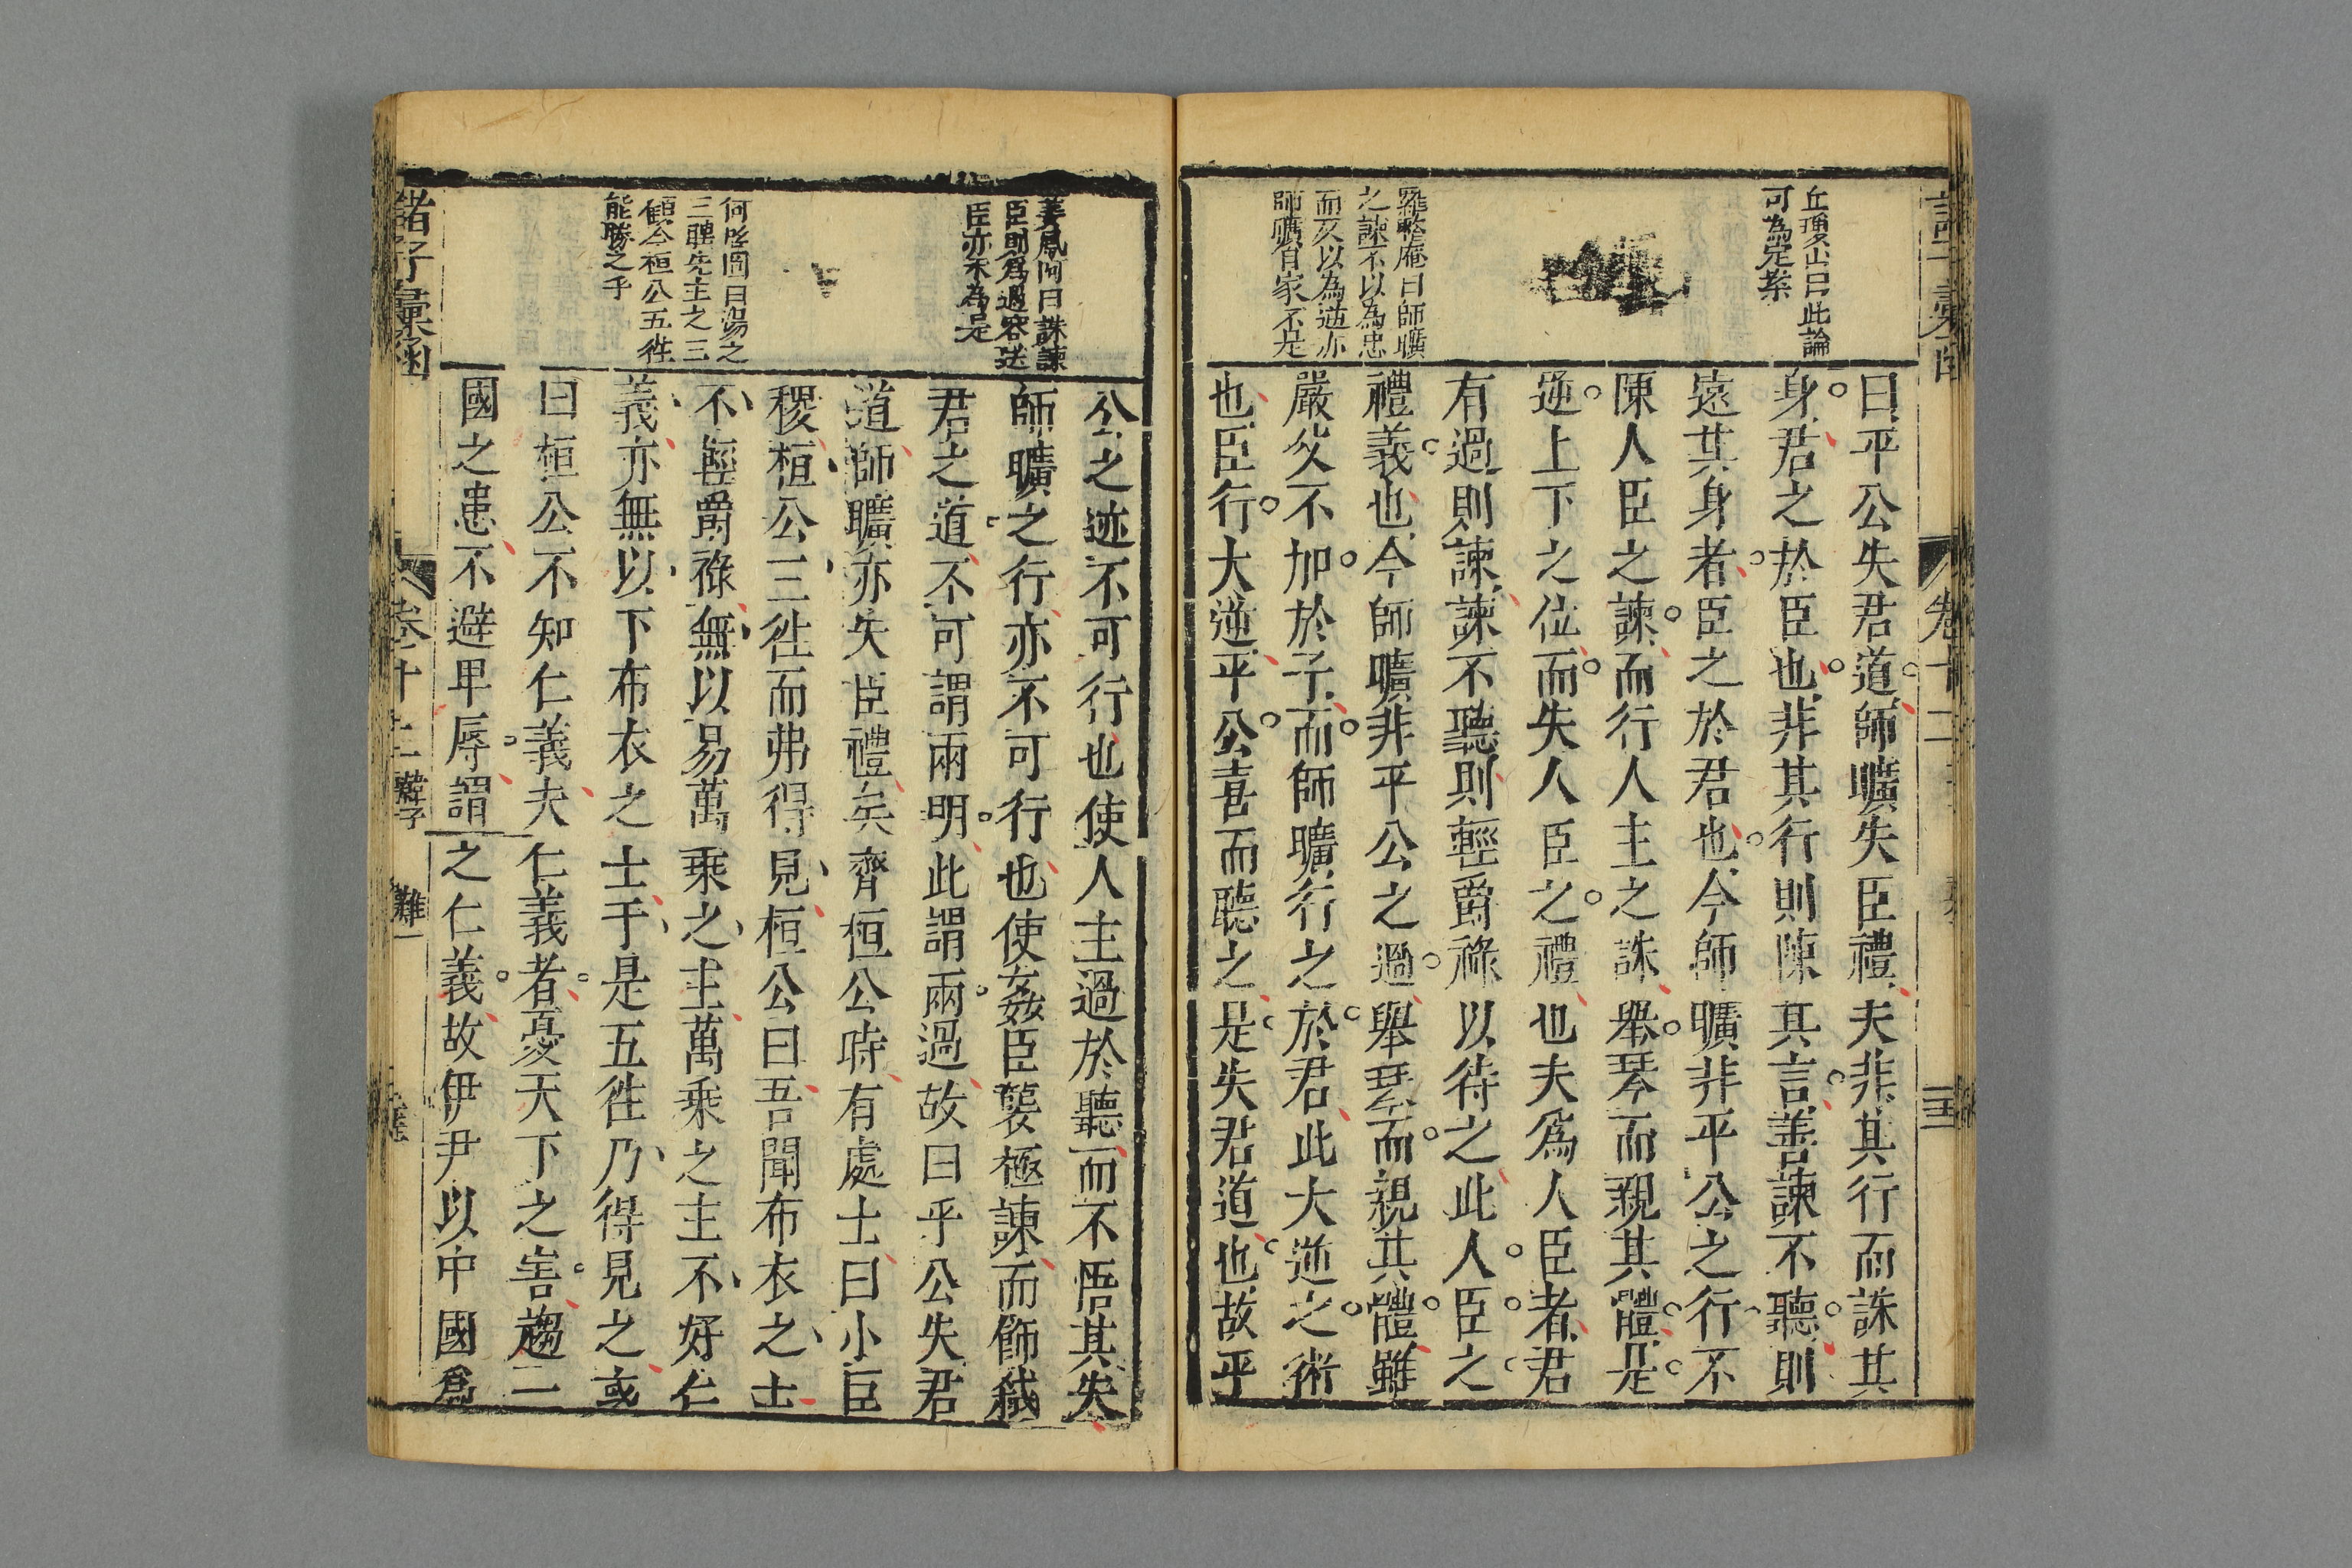 丘瓊山曰此論
可為定案
羅整庵曰師曠
之諫不以為忠
而反以為逆亦
師曠自家不是
曰平公失君道師曠失臣禮夫非其行而誅其
身君之於臣也非其行則陳其言善諫不聽則
遠其身者臣之於君也今師曠非平公之行不
陳人臣之諫而行人主之誅舉琴而親其體是
逆上下之位而失人臣之禮也夫為人臣者君
有過則諫諫不聽則輕爵祿以待之此人臣之
禮義也今師曠非平公之過舉琴而親其體雖
嚴父不加於子而師曠行之於君此大逆之術
也臣行大逆平公喜而聽之是失君道也故平
姜鳳阿曰誅諫
臣則為過容逆
臣亦未為是
何啓圖曰湯之
三聘先主之三
顧今桓公五徃
能勝之乎
公之迹不可行也使人主過於聽而不悟其失
師曠之行亦不可行也使姦臣襲極諫而飾弒
君之道不可謂兩明此謂兩過故曰平公失君
道師曠亦失臣禮矣齊桓公時有處士曰小臣
稷桓公三徃而弗得見桓公曰吾聞布衣之士
不輕爵祿無以易萬乗之主萬乗之主不好仁
義亦無以下布衣之士于是五徃乃得見之或
曰桓公不知仁義夫仁義者憂天下之害趨一
國之患不避卑辱謂之仁義故伊尹以中國為
諸子彙函
卷十二
韓子
難一